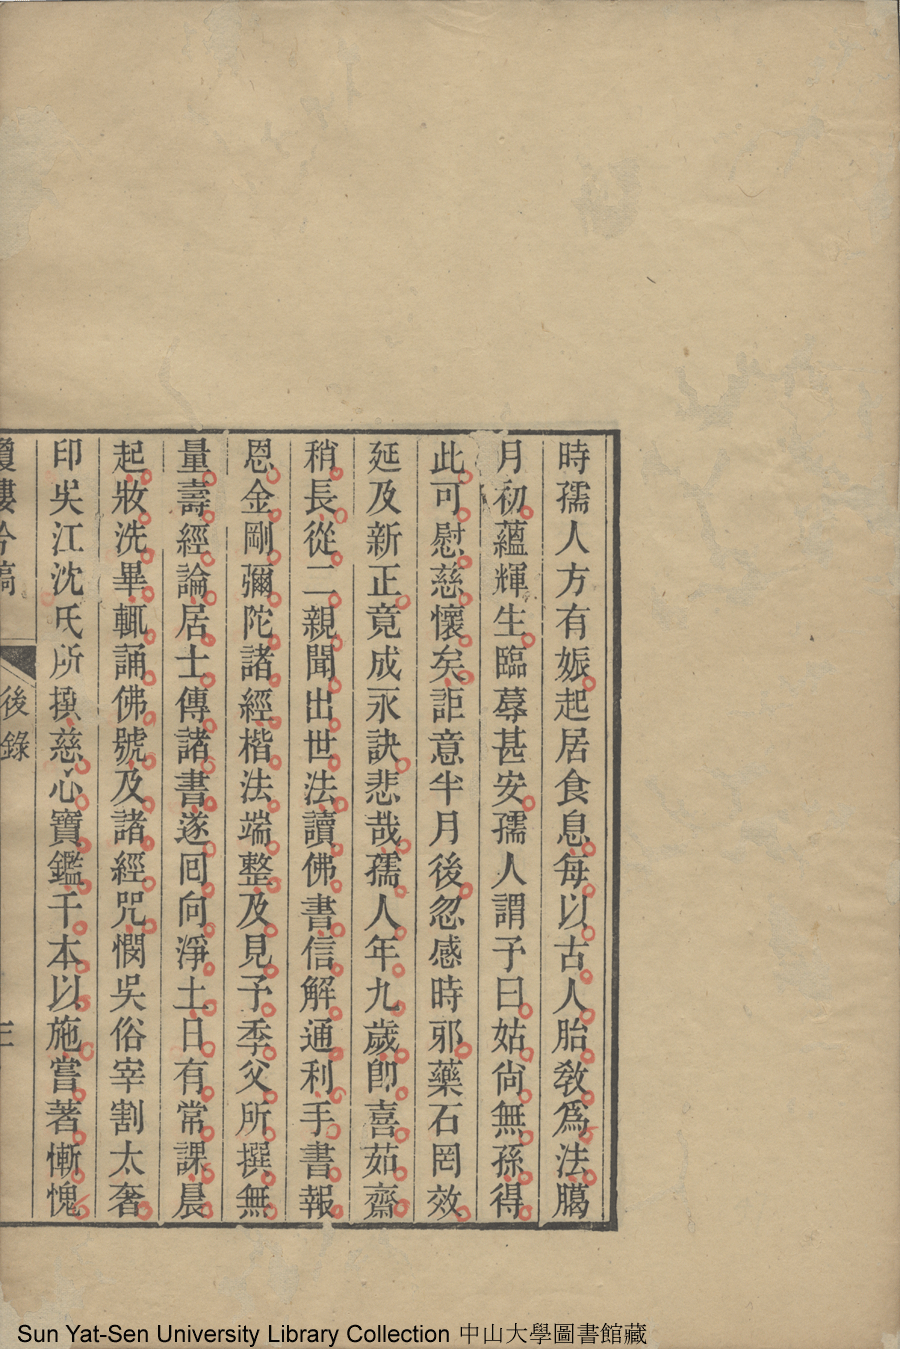 時孺人方有娠起居食息每以古人胎敎爲法臈
月初蘊輝生臨蓐甚安孺人謂予曰姑尙無孫得
此可慰慈懷矣詎意半月後忽感時邪藥石罔效
延及新正竟成永訣悲哉孺人年九歲卽喜茹齋
稍長從二親聞出世法讀佛書信解通利手書報
恩金剛彌陀諸經楷法端整及見予季父所撰無
量壽經論居士傳諸書遂囘向淨土日有常課晨
起妝洗畢輒誦佛號及諸經咒憫吳俗宰割太奢
印吳江沈氏所撰慈心寶鑑千本以施嘗著慚愧
瓊樓吟稿 後錄 三
Sun Yat-Sen University Library Collection 中山大學圖書館藏